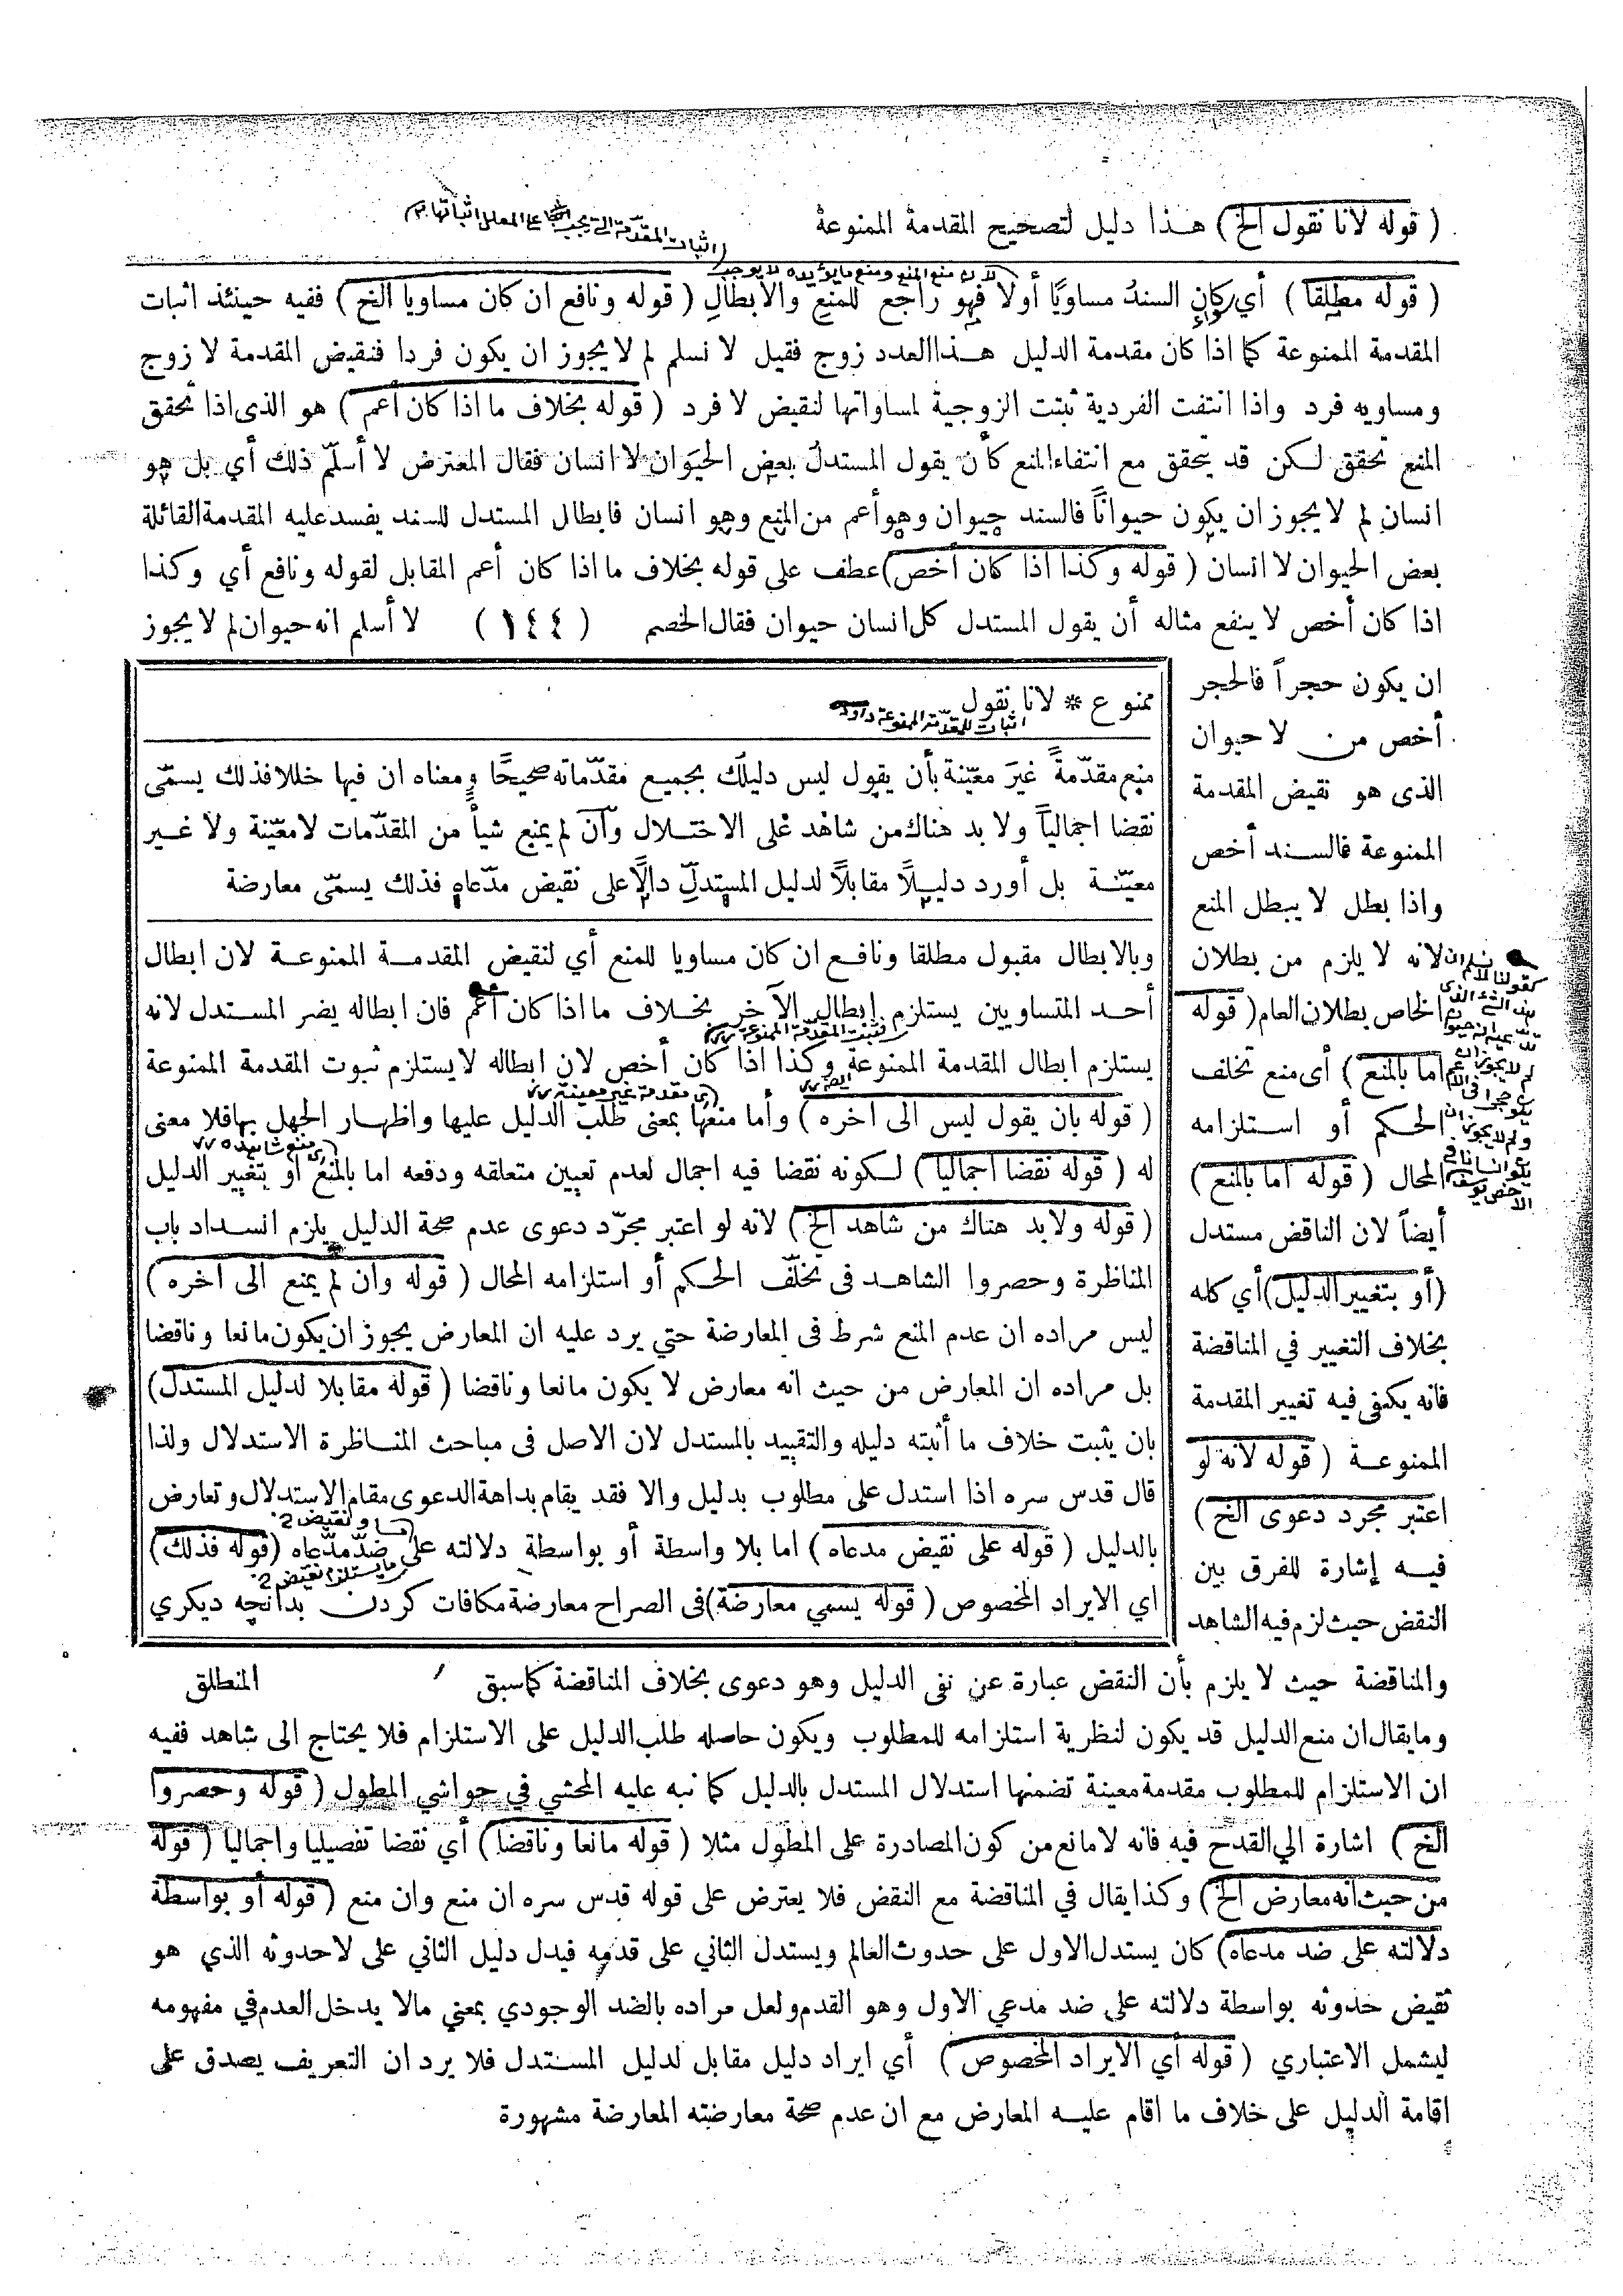 ( قوله لانا نقول الخ ) هذا دليل لتصحيح المقدمة الممنوعة
( قوله مطلقا ) أي كان السند مساويًا أولا فهو راجع للمنع والابطال ( قوله ونافع ان كان مساويا الخ ) ففيه حينئذ اثبات
المقدمة الممنوعة كما اذا كان مقدمة الدليل هذا العدد زوج فقيل لا نسلم لم لا يجوز ان يكون فردا فنقيض المقدمة لا زوج
ومساويه فرد واذا انتفت الفردية ثبتت الزوجية لمساواتها لنقيض لا فرد ( قوله بخلاف ما اذا كان أعم ) هو الذى اذا تحقق
المنع تحقق لكن قد يتحقق مع انتفاء المنع كأن يقول المستدل بعض الحيوان لا انسان فقال المعترض لا أسلّم ذلك أي بل هو
انسان لم لا يجوز ان يكون حيوانًا فالسند حيوان وهو أعم من المنع وهو انسان فابطال المستدل للسند يفسد عليه المقدمة القائلة
بعض الحيوان لا انسان ( قوله وكذا اذا كان أخص ) عطف على قوله بخلاف ما اذا كان أعم المقابل لقوله ونافع أي وكذا
اذا كان أخص لا ينفع مثاله أن يقول المستدل كل انسان حيوان فقال الخصم ( ١٤٤ ) لا أسلم انه حيوان لم لا يجوز
ان يكون حجراً فالحجر
أخص من لا حيوان
الذى هو نقيض المقدمة
الممنوعة فالسند أخص
واذا بطل لا يبطل المنع
لانه لا يلزم من بطلان
الخاص بطلان العام ( قوله
اما بالمنع ) أى منع تخلف
الحكم أو استلزامه
المحال ( قوله اما بالمنع )
أيضاً لان الناقض مستدل
( أو بتغيير الدليل ) أي كله
بخلاف التغيير في المناقضة
فانه يكفى فيه تغيير المقدمة
الممنوعة ( قوله لانه لو
اعتبر مجرد دعوى الخ )
فيه إشارة للفرق بين
النقض حيث لزم فيه الشاهد
ممنوع * لانا نقول
اثبات للمقدّمة الممنوعة داود
منع مقدّمةً غيرَ معيّنة بأن يقول ليس دليلك بجميع مقدّماته صحيحًا ومعناه ان فيها خللا فذلك يسمّى
نقضا اجمالياً ولا بد هناك من شاهد على الاختلال وان لم يمنع شيأً من المقدّمات لا معيّنة ولا غير
معيّنة بل أورد دليلًا مقابلًا لدليل المستدلّ دالًا على نقيض مدّعاه فذلك يسمّى معارضة
وبالابطال مقبول مطلقا ونافع ان كان مساويا للمنع أي لنقيض المقدمة الممنوعة لان ابطال
أحد المتساويين يستلزم ابطال الآخر بخلاف ما اذا كان أعم فان ابطاله يضر المستدل لانه
يستلزم ابطال المقدمة الممنوعة وكذا اذا كان أخص لان ابطاله لا يستلزم ثبوت المقدمة الممنوعة
( قوله بان يقول ليس الى اخره ) وأما منعها بمعنى طلب الدليل عليها واظهار الجهل بها فلا معنى
له ( قوله نقضا اجماليا ) لكونه نقضا فيه اجمال لعدم تعيين متعلقه ودفعه اما بالمنع او بتغيير الدليل
( قوله ولابد هناك من شاهد الخ ) لانه لو اعتبر مجرّد دعوى عدم صحة الدليل يلزم انسداد باب
المناظرة وحصروا الشاهد فى تخلّف الحكم أو استلزامه المحال ( قوله وان لم يمنع الى اخره )
ليس مراده ان عدم المنع شرط فى المعارضة حتى يرد عليه ان المعارض يجوز ان يكون مانعا وناقضا
بل مراده ان المعارض من حيث انه معارض لا يكون مانعا وناقضا ( قوله مقابلا لدليل المستدل )
بان يثبت خلاف ما أثبته دليله والتقييد بالمستدل لان الاصل فى مباحث المناظرة الاستدلال ولذا
قال قدس سره اذا استدل على مطلوب بدليل والا فقد يقام بداهة الدعوى مقام الاستدلال وتعارض
بالدليل ( قوله على نقيض مدعاه ) اما بلا واسطة أو بواسطة دلالته على ضدّ مدّعاه ( قوله فذلك )
اي الايراد المخصوص ( قوله يسمي معارضة ) فى الصراح معارضة مكافات كردن بدانچه ديكري
والمناقضة حيث لا يلزم بأن النقض عبارة عن نفى الدليل وهو دعوى بخلاف المناقضة كما سبق المنطلق
وما يقال ان منع الدليل قد يكون لنظرية استلزامه للمطلوب ويكون حاصله طلب الدليل على الاستلزام فلا يحتاج الى شاهد ففيه
ان الاستلزام للمطلوب مقدمة معينة تضمنها استدلال المستدل بالدليل كما نبه عليه المحشي في حواشي المطول ( قوله وحصروا
الخ ) اشارة الي القدح فيه فانه لا مانع من كون المصادرة على المطول مثلا ( قوله مانعا وناقضا ) أي نقضا تفصيليا واجماليا ( قوله
من حيث انه معارض الخ ) وكذا يقال في المناقضة مع النقض فلا يعترض على قوله قدس سره ان منع وان منع ( قوله أو بواسطة
دلالته على ضد مدعاه ) كان يستدل الاول على حدوث العالم ويستدل الثاني على قدمه فيدل دليل الثاني على لا حدوثه الذي هو
نقيض حدوثه بواسطة دلالته على ضد مدعي الاول وهو القدم ولعل مراده بالضد الوجودي بمعني مالا يدخل العدم في مفهومه
ليشمل الاعتباري ( قوله أي الايراد المخصوص ) أي ايراد دليل مقابل لدليل المستدل فلا يرد ان التعريف يصدق على
اقامة الدليل على خلاف ما اقام عليه المعارض مع ان عدم صحة معارضته المعارضة مشهورة